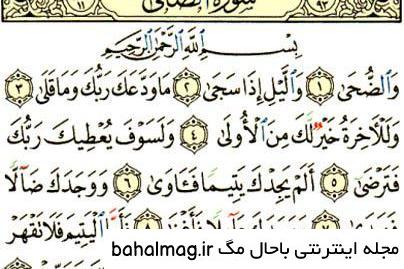 سورة الضحى
بِسْمِ اللَّهِ الرَّحْمَٰنِ الرَّحِيمِ
وَالضُّحَىٰ ١ وَاللَّيْلِ إِذَا سَجَىٰ ٢ مَا وَدَّعَكَ رَبُّكَ وَمَا قَلَىٰ ٣
وَلَلْآخِرَةُ خَيْرٌ لَكَ مِنَ الْأُولَىٰ ٤ وَلَسَوْفَ يُعْطِيكَ رَبُّكَ
فَتَرْضَىٰ ٥ أَلَمْ يَجِدْكَ يَتِيمًا فَآوَىٰ ٦ وَوَجَدَكَ ضَالًّا
الْيَتِيمَ فَلَا تَقْهَرْ
مجله اینترنتی باحال مگ bahalmag.ir